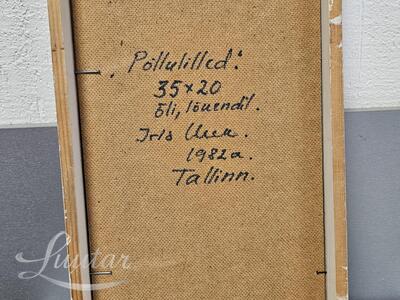 „Põllulilled."
35×20
Õli, lõuendil.
Iris
1982a.
Tallinn.
Luutar